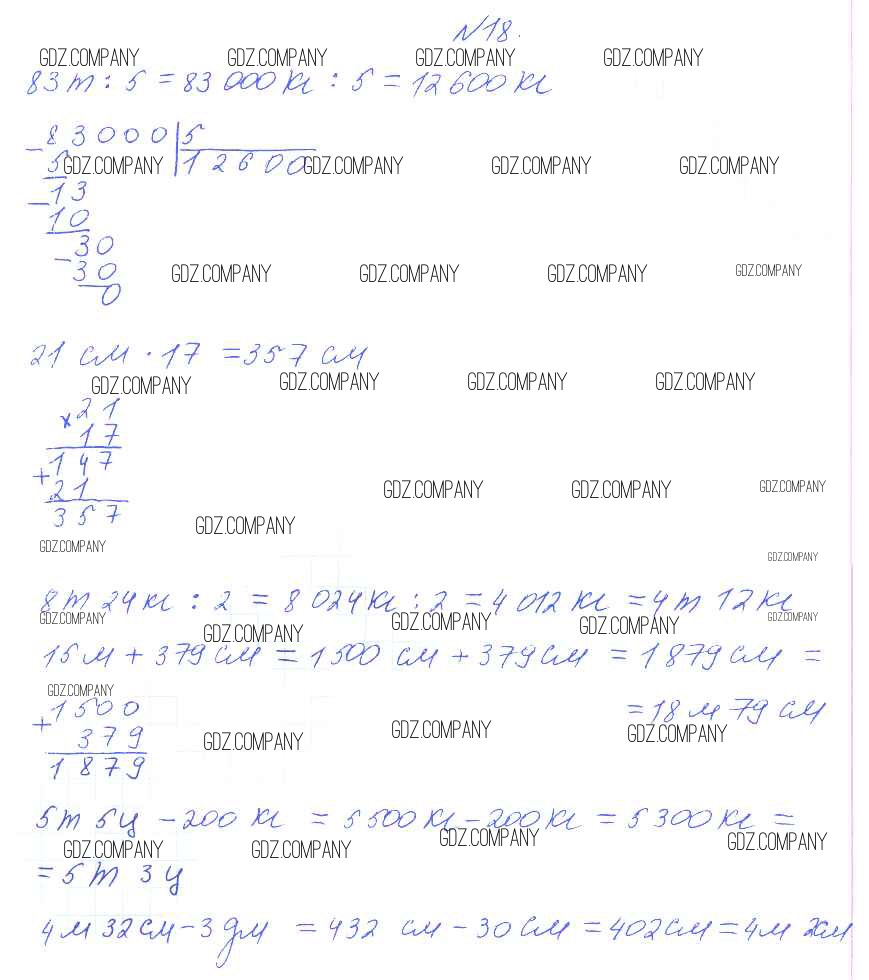 N18.
GDZ.COMPANY GDZ.COMPANY GDZ.COMPANY GDZ.COMPANY
83 т : 5 = 83 000 кг : 5 = 12 600 кг
- 83000 | 5
5 GDZ.COMPANY 12600 GDZ.COMPANY GDZ.COMPANY GDZ.COMPANY
- 13
10
- 30
30 GDZ.COMPANY GDZ.COMPANY GDZ.COMPANY GDZ.COMPANY
0
21 см · 17 = 357 см
GDZ.COMPANY GDZ.COMPANY GDZ.COMPANY GDZ.COMPANY
x 21
17
+ 147
21 GDZ.COMPANY GDZ.COMPANY GDZ.COMPANY
357 GDZ.COMPANY
GDZ.COMPANY GDZ.COMPANY
8 т 24 кг : 2 = 8 024 кг : 2 = 4 012 кг = 4 т 12 кг
GDZ.COMPANY GDZ.COMPANY GDZ.COMPANY GDZ.COMPANY GDZ.COMPANY
15 м + 379 см = 1 500 см + 379 см = 1 879 см =
GDZ.COMPANY
+ 1500 = 18 м 79 см
379 GDZ.COMPANY GDZ.COMPANY GDZ.COMPANY
1879
5 т 5 ц - 200 кг = 5 500 кг - 200 кг = 5 300 кг =
GDZ.COMPANY GDZ.COMPANY GDZ.COMPANY GDZ.COMPANY
= 5 т 3 ц
4 м 32 см - 3 дм = 432 см - 30 см = 402 см = 4 м 2 см